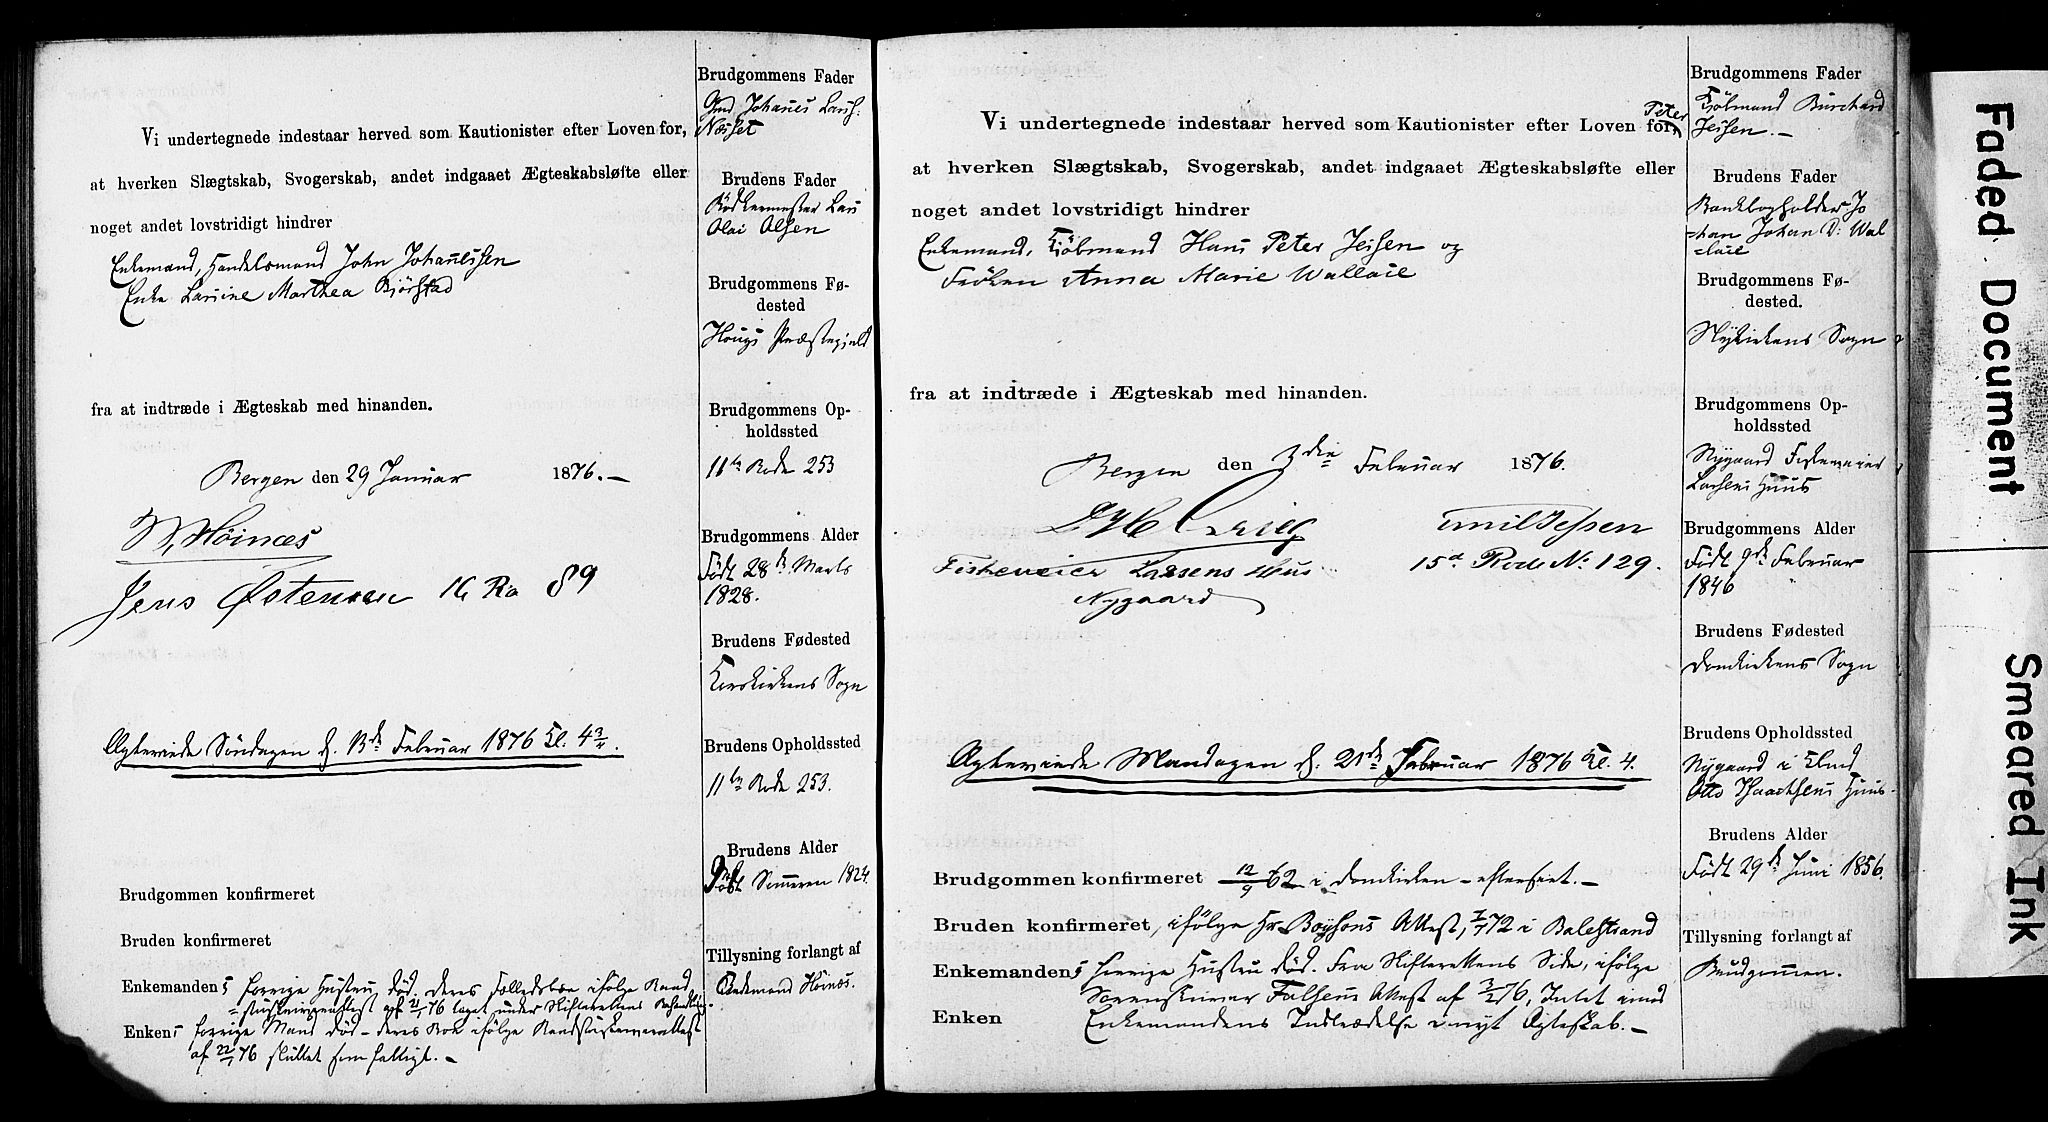 Vi undertegnede indestaar herved som Kautionister efter Loven for,
at hverken Slægtskab, Svogerskab, andet indgaaet Ægteskabsløfte eller
noget andet lovstridigt hindrer
Enkemand, Handelsmand John Johannessen
Enke Marthea Bjørstad
fra at indtræde i Ægteskab med hinanden.
Bergen den 29 Januar 1876. –
Høinæs
Jens Østensen 16 Ro 89
Ægteviede Søndagen d. 13de Februar 1876 Kl. 4¾.
Brudgommen konfirmeret
Bruden konfirmeret
Enkemandens forrige Hustru død, deres Fællesboe ifølge
af 21/1 76 taget under Skifterettens Behandling.
Enkens forrige Mand død – deres Boe ifølge
af 22/1 76 sluttet som fattigt. –
Brudgommens Fader
Johannes
Brudens Fader
Bødkermester
Olai Olsen
Brudgommens Fødested
Præstegjeld
Brudgommens Opholdssted
11te Rode 253
Brudgommens Alder
Født 28de Marts
1828.
Brudens Fødested
Korskirkens Sogn
Brudens Opholdssted
11te Rode 253.
Brudens Alder
Født Sommeren 1824.
Tillysning forlangt af
Høinæs.
Vi undertegnede indestaar herved som Kautionister efter Loven for,
at hverken Slægtskab, Svogerskab, andet indgaaet Ægteskabsløfte eller
noget andet lovstridigt hindrer
Enkemand, Kjøbmand Hans Peter Jessen og
Frøken Anna Marie Wallace
fra at indtræde i Ægteskab med hinanden.
Bergen den 3die Februar 1876.
Emil Jessen
Fiskeveier Lassens Hus 15de Rode No: 129.
Nygaard
Ægteviede Mandagen d. 21de Februar 1876 Kl. 4.
Brudgommen konfirmeret 12/9 62 i Domkirken – efterseet. –
Bruden konfirmeret, ifølge Hr. Boysens Attest, 7/7 72 i Balestrand
Enkemandens forrige Hustru død. Fra Skifterettens Side, ifølge
Sorenskriver Falsens Attest af 3/2 76, Intet imod
Enken Enkemandens Indtrædelse i nyt Ægteskab. –
Brudgommens Fader
Kjøbmand Burchard
Peter Jessen. –
Brudens Fader
Bankbogholder Jo
=han Johan D: Wal
=lace
Brudgommens Fødested.
Nykirkens Sogn
Brudgommens Opholdssted
Nygaard Fiskeveier
Lassens Huus
Brudgommens Alder
Født 9de Februar
1846
Brudens Fødested
Domkirkens Sogn
Brudens Opholdssted
Nygaard i
Otto Isaachsens Huus.
Brudens Alder
Født 29de Juni 1856.
Tillysning forlangt af
Brudgommen.
Faded Document
Smeared Ink